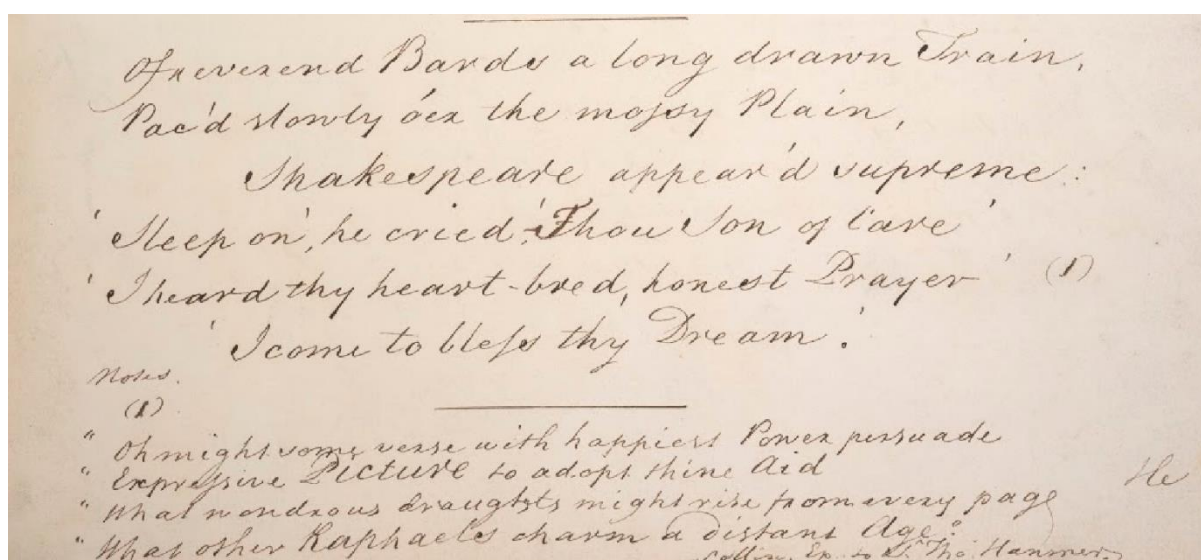 Of reverend Bards a long drawn Train,
Pac'd slowly o'er the mossy Plain,
Shakespeare appear'd supreme:
'Sleep on', he cried, 'Thou Son of Care'
'I heard thy heart-bred, honest Prayer' (1)
'I come to bless thy Dream.'
Notes.
(1)
"Oh might some verse with happiest Power persuade
"Expressive Picture to adopt thine Aid
He
"What wondrous draughts might rise from every page
"What other Raphaels charm a distant Age."
Collin. Ep. to Sr. Tho. Hanmer.